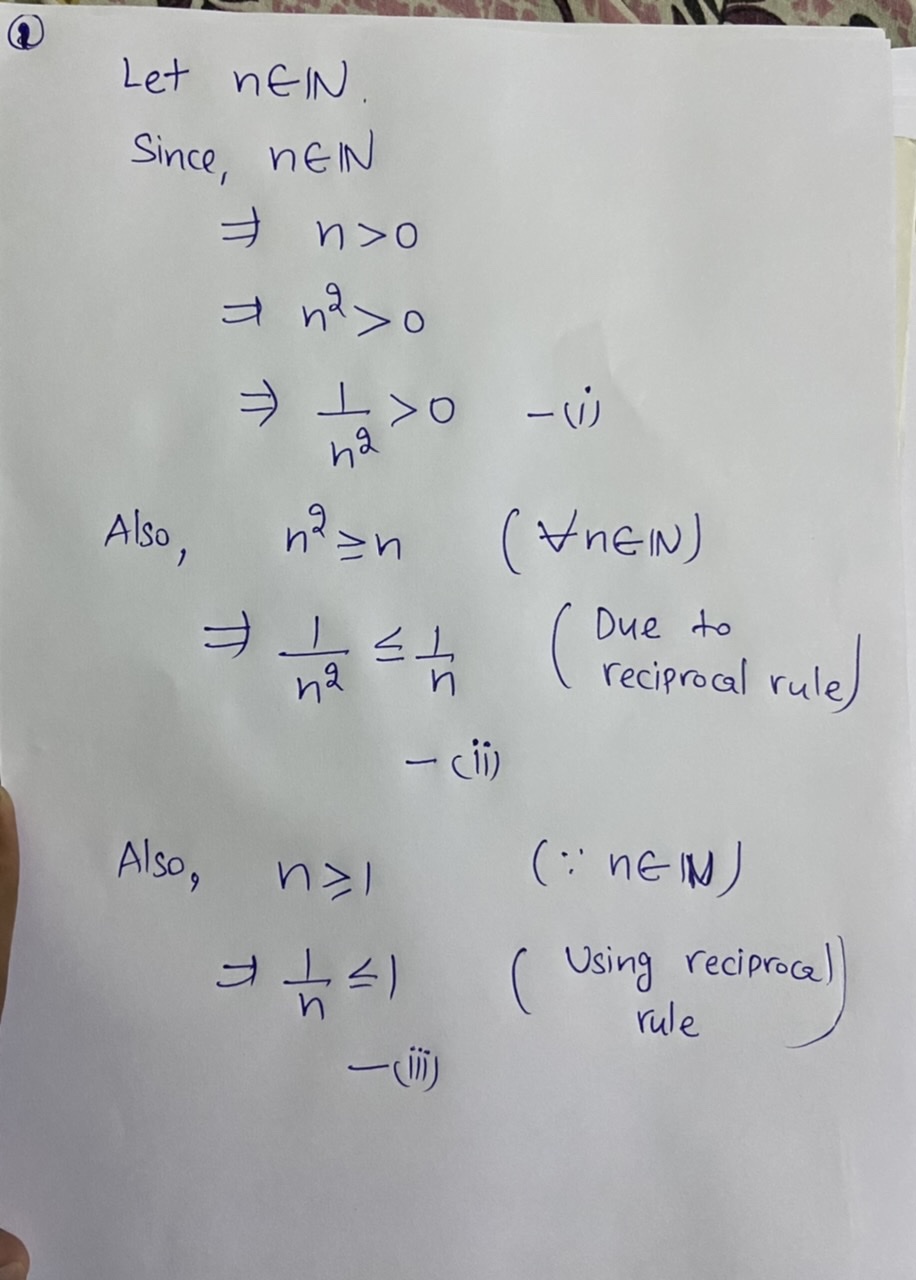 ②
Let n∈ℕ.
Since, n∈ℕ
⇒ n>0
⇒ n²>0
⇒ 1/n² >0 -(i)
Also, n²≥n (∀n∈ℕ)
⇒ 1/n² ≤ 1/n (Due to
reciprocal rule)
-(ii)
Also, n≥1 (∵ n∈ℕ)
⇒ 1/n ≤1 (Using reciprocal
rule)
-(iii)